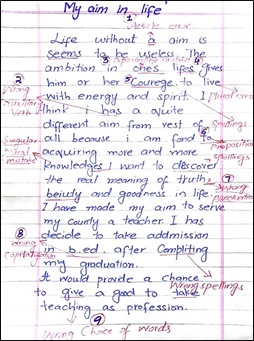 My aim in life
①
Article error
Life without a aim is
seems to be useless. The
③ ④
ambition in ones lifes gives
②
him or her Courege to live
Wrong
with energy and spirit. I
Plural error
Verb
think i has a quite
different aim from rest of
Spellings
Singular
all because i am fond to
Preposition
mistake
acquring more and more
spellings
knowledges I want to descover
the real meaning of truth,
⑦
beiudy and goodness in life.
Wrong
punctuation
I have made my aim to serve
my county a teacher. I has
⑧
decide to take addmission
Wrong
in b.ed. after Complting
Capitalization
my graduation.
Wrong spellings
It would provide a chance
to give a good to take
teaching as profession.
⑨
Wrong Choice of words